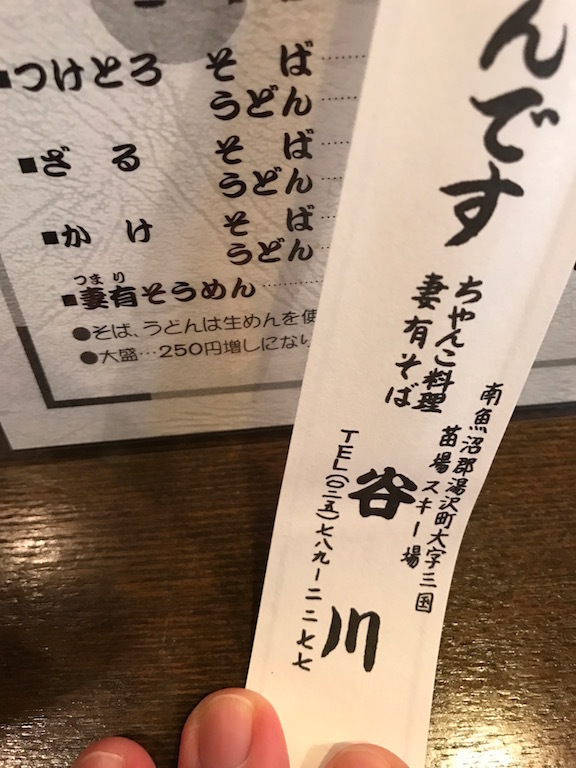 ■つけとろ そば
うどん
■ざる そば
うどん
■かけ そば
うどん
つまり
■妻有そうめん
●そば、うどんは生めんを使
●大盛…250円増しになり
んです
ちゃんこ料理
妻有そば
南魚沼郡湯沢町大字三国
苗場スキー場
谷川
TEL(〇二五)七八九ー二二七七